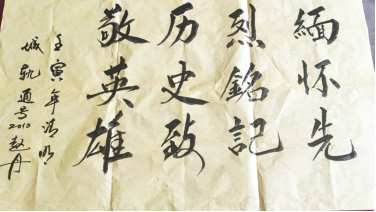 缅怀先
烈銘記
历史致
敬英雄
壬寅年清明
城轨通号2010赵丹